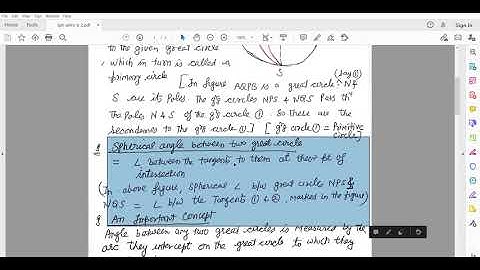 Home Tools
Sign In
to the given great circle
, which in turn is called a
primary circle
[In figure AQPB is a great circle (say ①) N &
S are its Poles. The gt circles NPS & NQS Pass thr
the Pole N & S of the gt circle ①. So these are the
Secondaries to the gt circle ①.] [gt circle ① = Primitive
Circle]
S
Spherical angle between two great circle
= ∠ between the tangents to them at their pt of
intersection
(In above figure, Spherical ∠ b/w great circle NPS &
NQS = ∠ b/w the Tangents ① & ②, marked in the figure)
An Important Concept
Angle between any two great circles is measured by the
arc they intercept on the great circle to which they